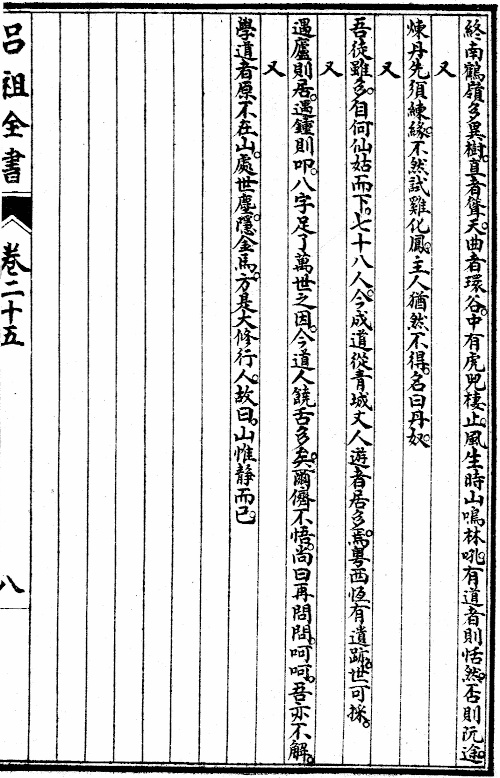 終南鶴嶺多異樹。直者聳天。曲者環谷。中有虎兕棲止。風生時山鳴林吼。有道者則恬然。否則沉途。
又
煉丹先須練緣。不然試雞化鳳。主人猶然不得。名曰丹奴。
又
吾徒雖多。自何仙姑而下。七十八人。今成道從青城丈人遊者居多焉。粵西恆有遺跡。世可採。
又
遇廬則居。遇鍾則叩。八字足了萬世之因。今道人饒舌多矣。爾儕不悟。尚曰再問問。呵呵。吾亦不解。
又
學道者原不在山。處世塵。隱金馬。方是大修行人。故曰。山惟靜而已。
呂祖全書
卷二十五
八